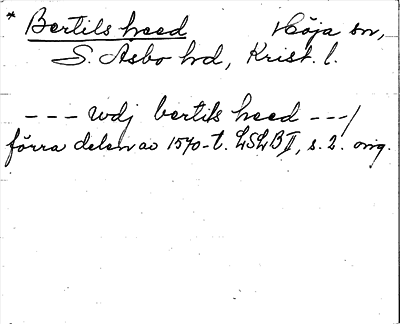 * Bertils heed Höja sn,
S. Åsbo hd, Krist. l.
--- udj bertils heed ---/
förra delen av 1570-t. LSLB II, s. 2. orig.